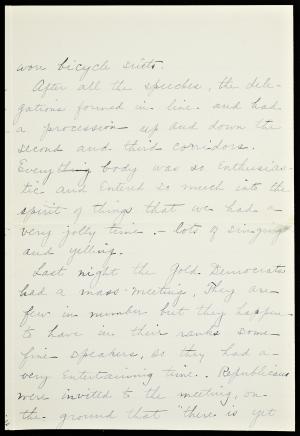 wore bicycle suits.
After all the speeches, the dele-
gations formed in line and had
a procession up and down the
second and third corridors.
Everything body was so enthusias-
tic and entered so much into the
spirit of things that we had a
very jolly time – lots of singing
and yelling.
Last night the Gold Democrats
had a mass-meeting. They are
few in number but they happen
to have in their ranks some
fine speakers, so they had a
very entertaining time. Republicans
were invited to the meeting, on
the ground that "there is yet